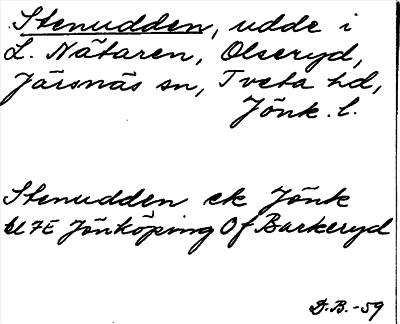 Stenudden, udde i
L. Nätaren, Olseryd,
Järsnäs sn, Tveta hd,
Jönk. l.
Stenudden ek Jönk
bl 7E Jönköping Of Barkeryd
D.B.-59